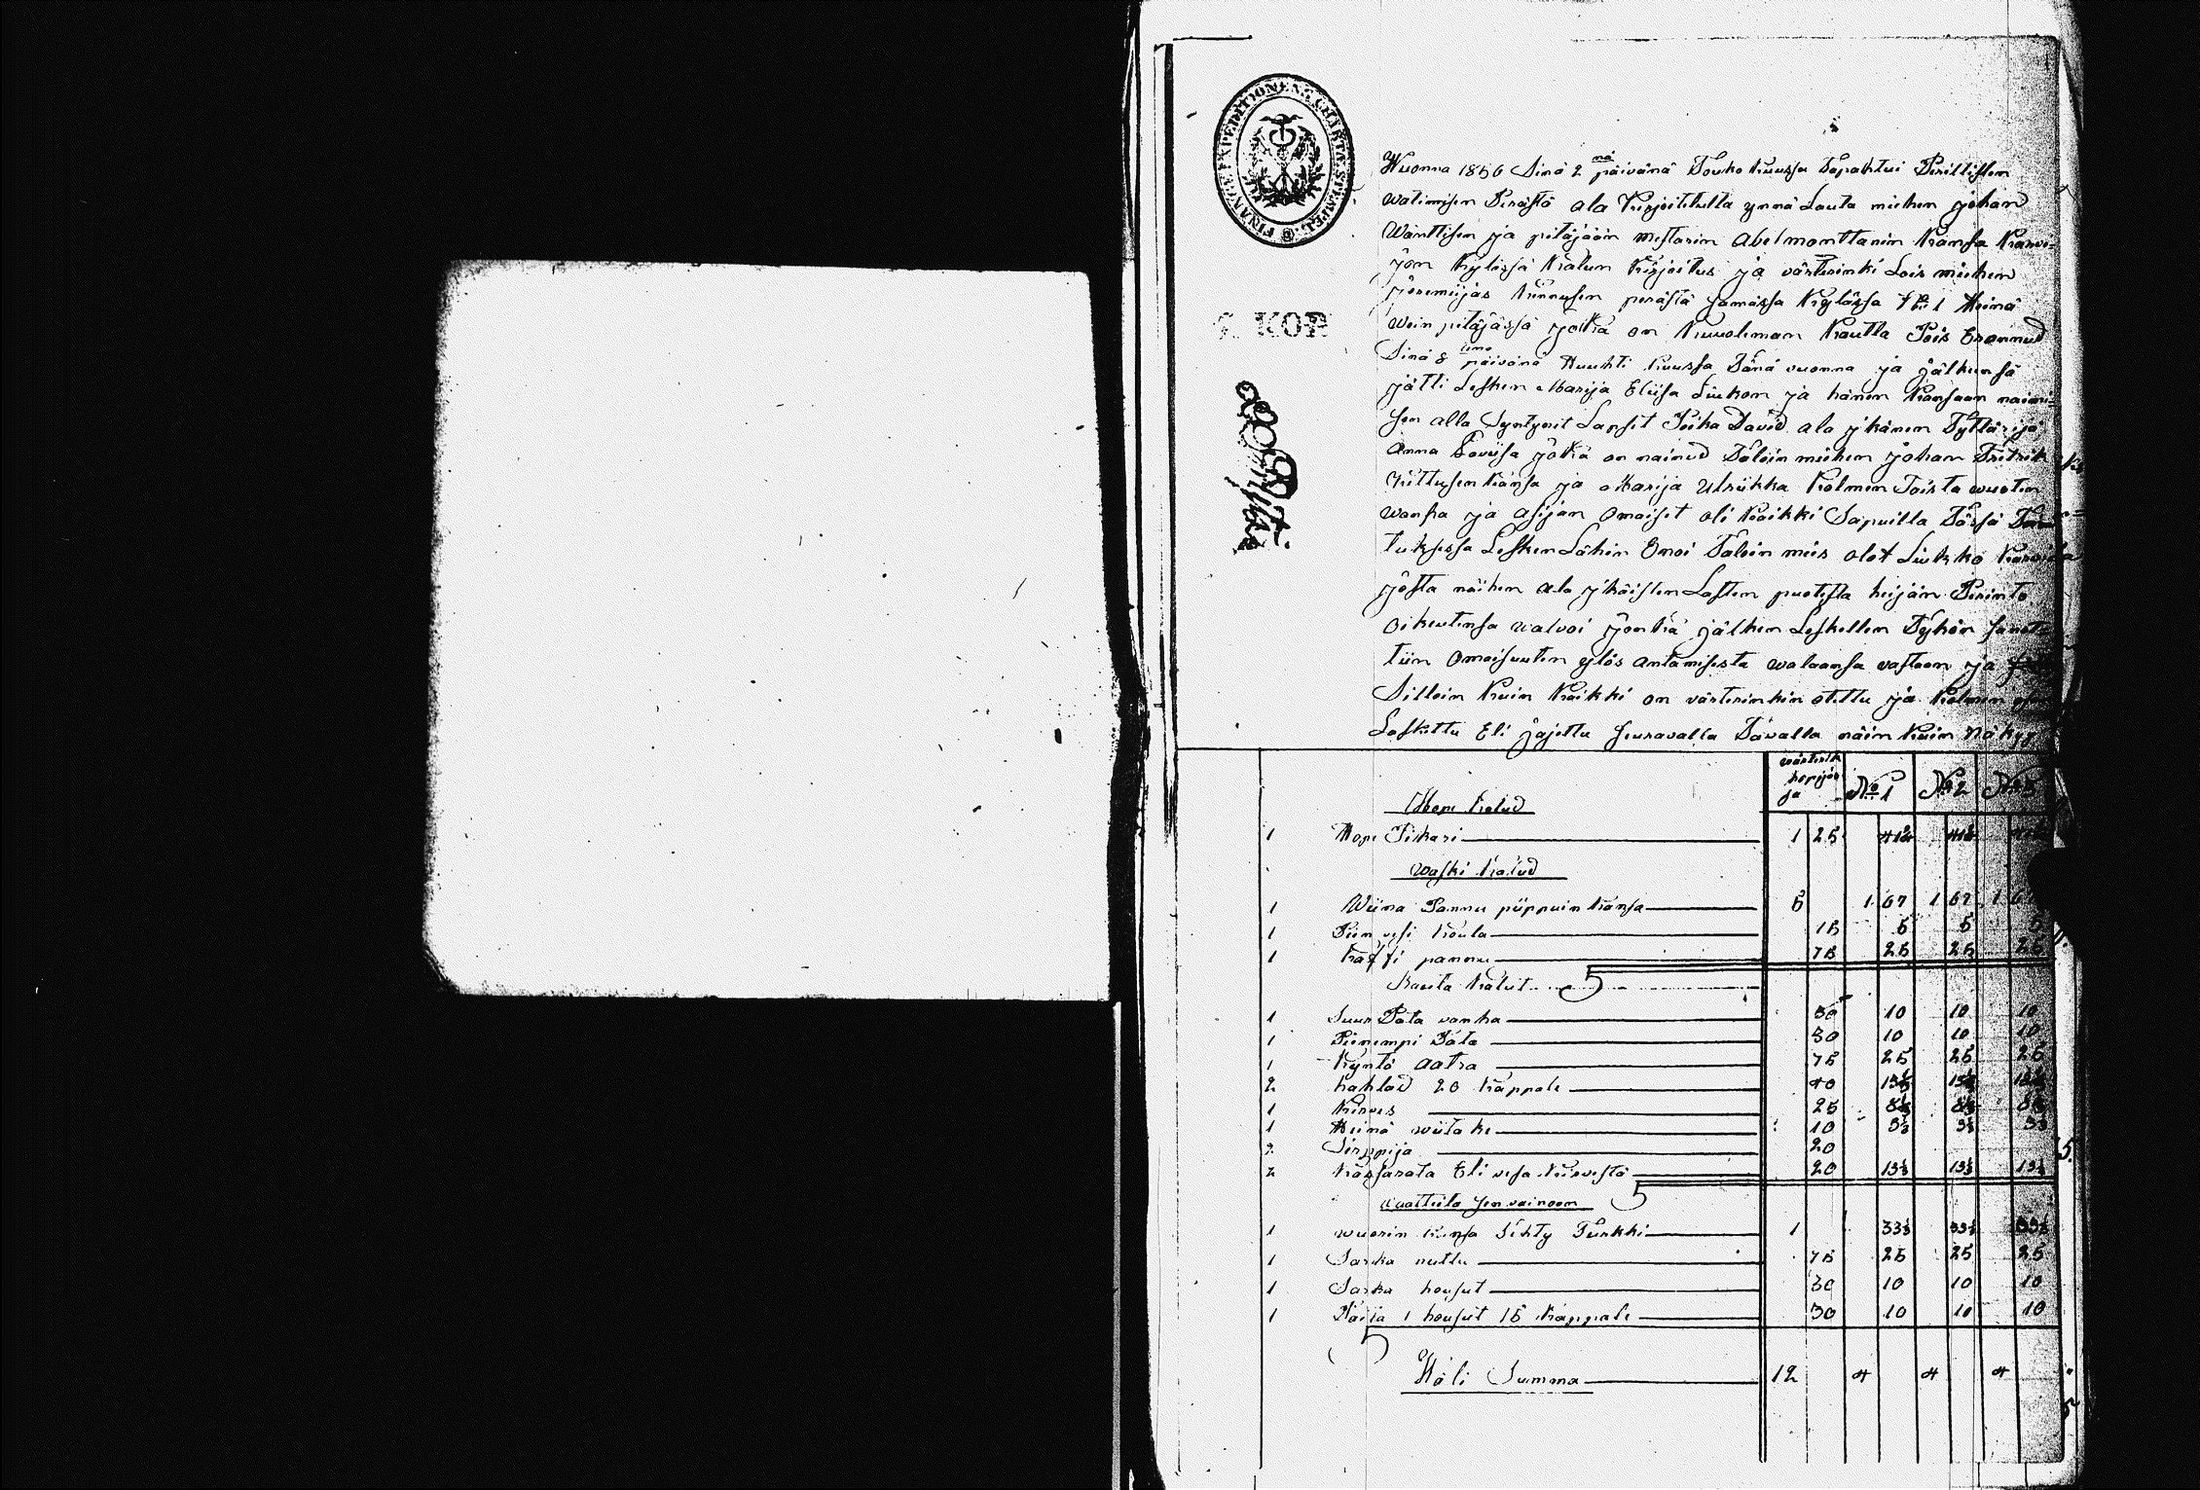 FINANCE EXPEDITIONENS CHARTÆ STEMPEL
KOP
Wuonna 1856 Sinä 2 nä päivänä Touko kuussa Tapahtui Perillisten
watimisen Perästä ala Kirjoitetulta ynnä Lauta miehen johan
Wänttisen ja pitäjään mestarin Abel monttanin kansa Karvi-
jon kylässä kalun kirjoitus ja värterinki Lois miehen
jeremijas kinnusen perästä samassa kylässä № 1 Heinä
wein pitäjässä jotka on kuuoleman kautta Pois Erannud
Sinä 8 päivänä Huuhti kuussa Tänä vuonna ja jälkensä
jätti Lesken Marija Eliisa Liukon ja hänen kansaan naimi-
sen alla Syntynit Lapset Poika David ala jkänen Tyttärijä
Anna Loviisa jotka on nainud Taloin miehen johan Fretrik
kittusen kansa ja Marija Ulriikka kolmen Toista wuoten
wanha ja asijan omaiset oli kaikki Sapuilla Tässä
tuksessa Lesken Lähin Enoi Taloin mies olof Liukko
josta näihen ala jkäisten Lasten puolesta heijän Perinto
oikeutensa walvoi jonka jälken Leskellen Tykön
tiin omaisuuten ylös antamisesta walaansa vastaan ja
Silloin kuin kaikki on värterinkin otettu ja kolmen
Laskettu Eli jajettu Seuravalla Tavalla näin kuin näkyy
hopijas
sa № 1 № 2 № 3
Hope kalud
1 Hope Pikari 1 25
Waski kalud
1 Wiina Pannu piippuin kansa 5 1 67 1 67 1
1 Piim vesi koula 15 5 5 5
1 kaffi pannu 75 25 25 25
Rauta kalut
1 Suur Pata vanha 30 10 10 10
1 Pienempi Pata 30 10 10 10
1 Kyntö aatra 75 25 25 25
2 kahlad 20 kappale 40 13⅓ 13⅓ 13⅓
1 kirves 25 8⅓ 8⅓ 8⅓
1 Heinä wiitake 10 3⅓ 3⅓ 3⅓
2 Sirppijä 20
2 Eli vesa kirvestä 20 13⅓ 13⅓ 13⅓
waatteita sen vainoon
1 wuorin kansa Tehty Turkki 1 33⅓ 33⅓ 33⅓
1 Sarka nuttu 75 25 25 25
1 Sarka housut 30 10 10 10
1 Paita 1 housut 15 kappale 30 10 10 10
Wäli Summa 12 4 4 4